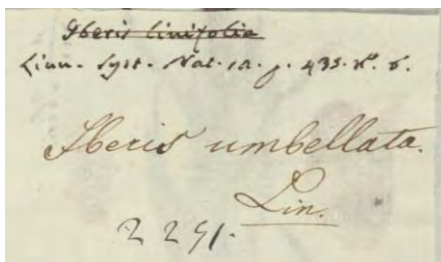 Iberis linifolia
Linn. Syst. Nat. 12. p. 435. n°. 6.
Iberis umbellata.
Lin.
2291.